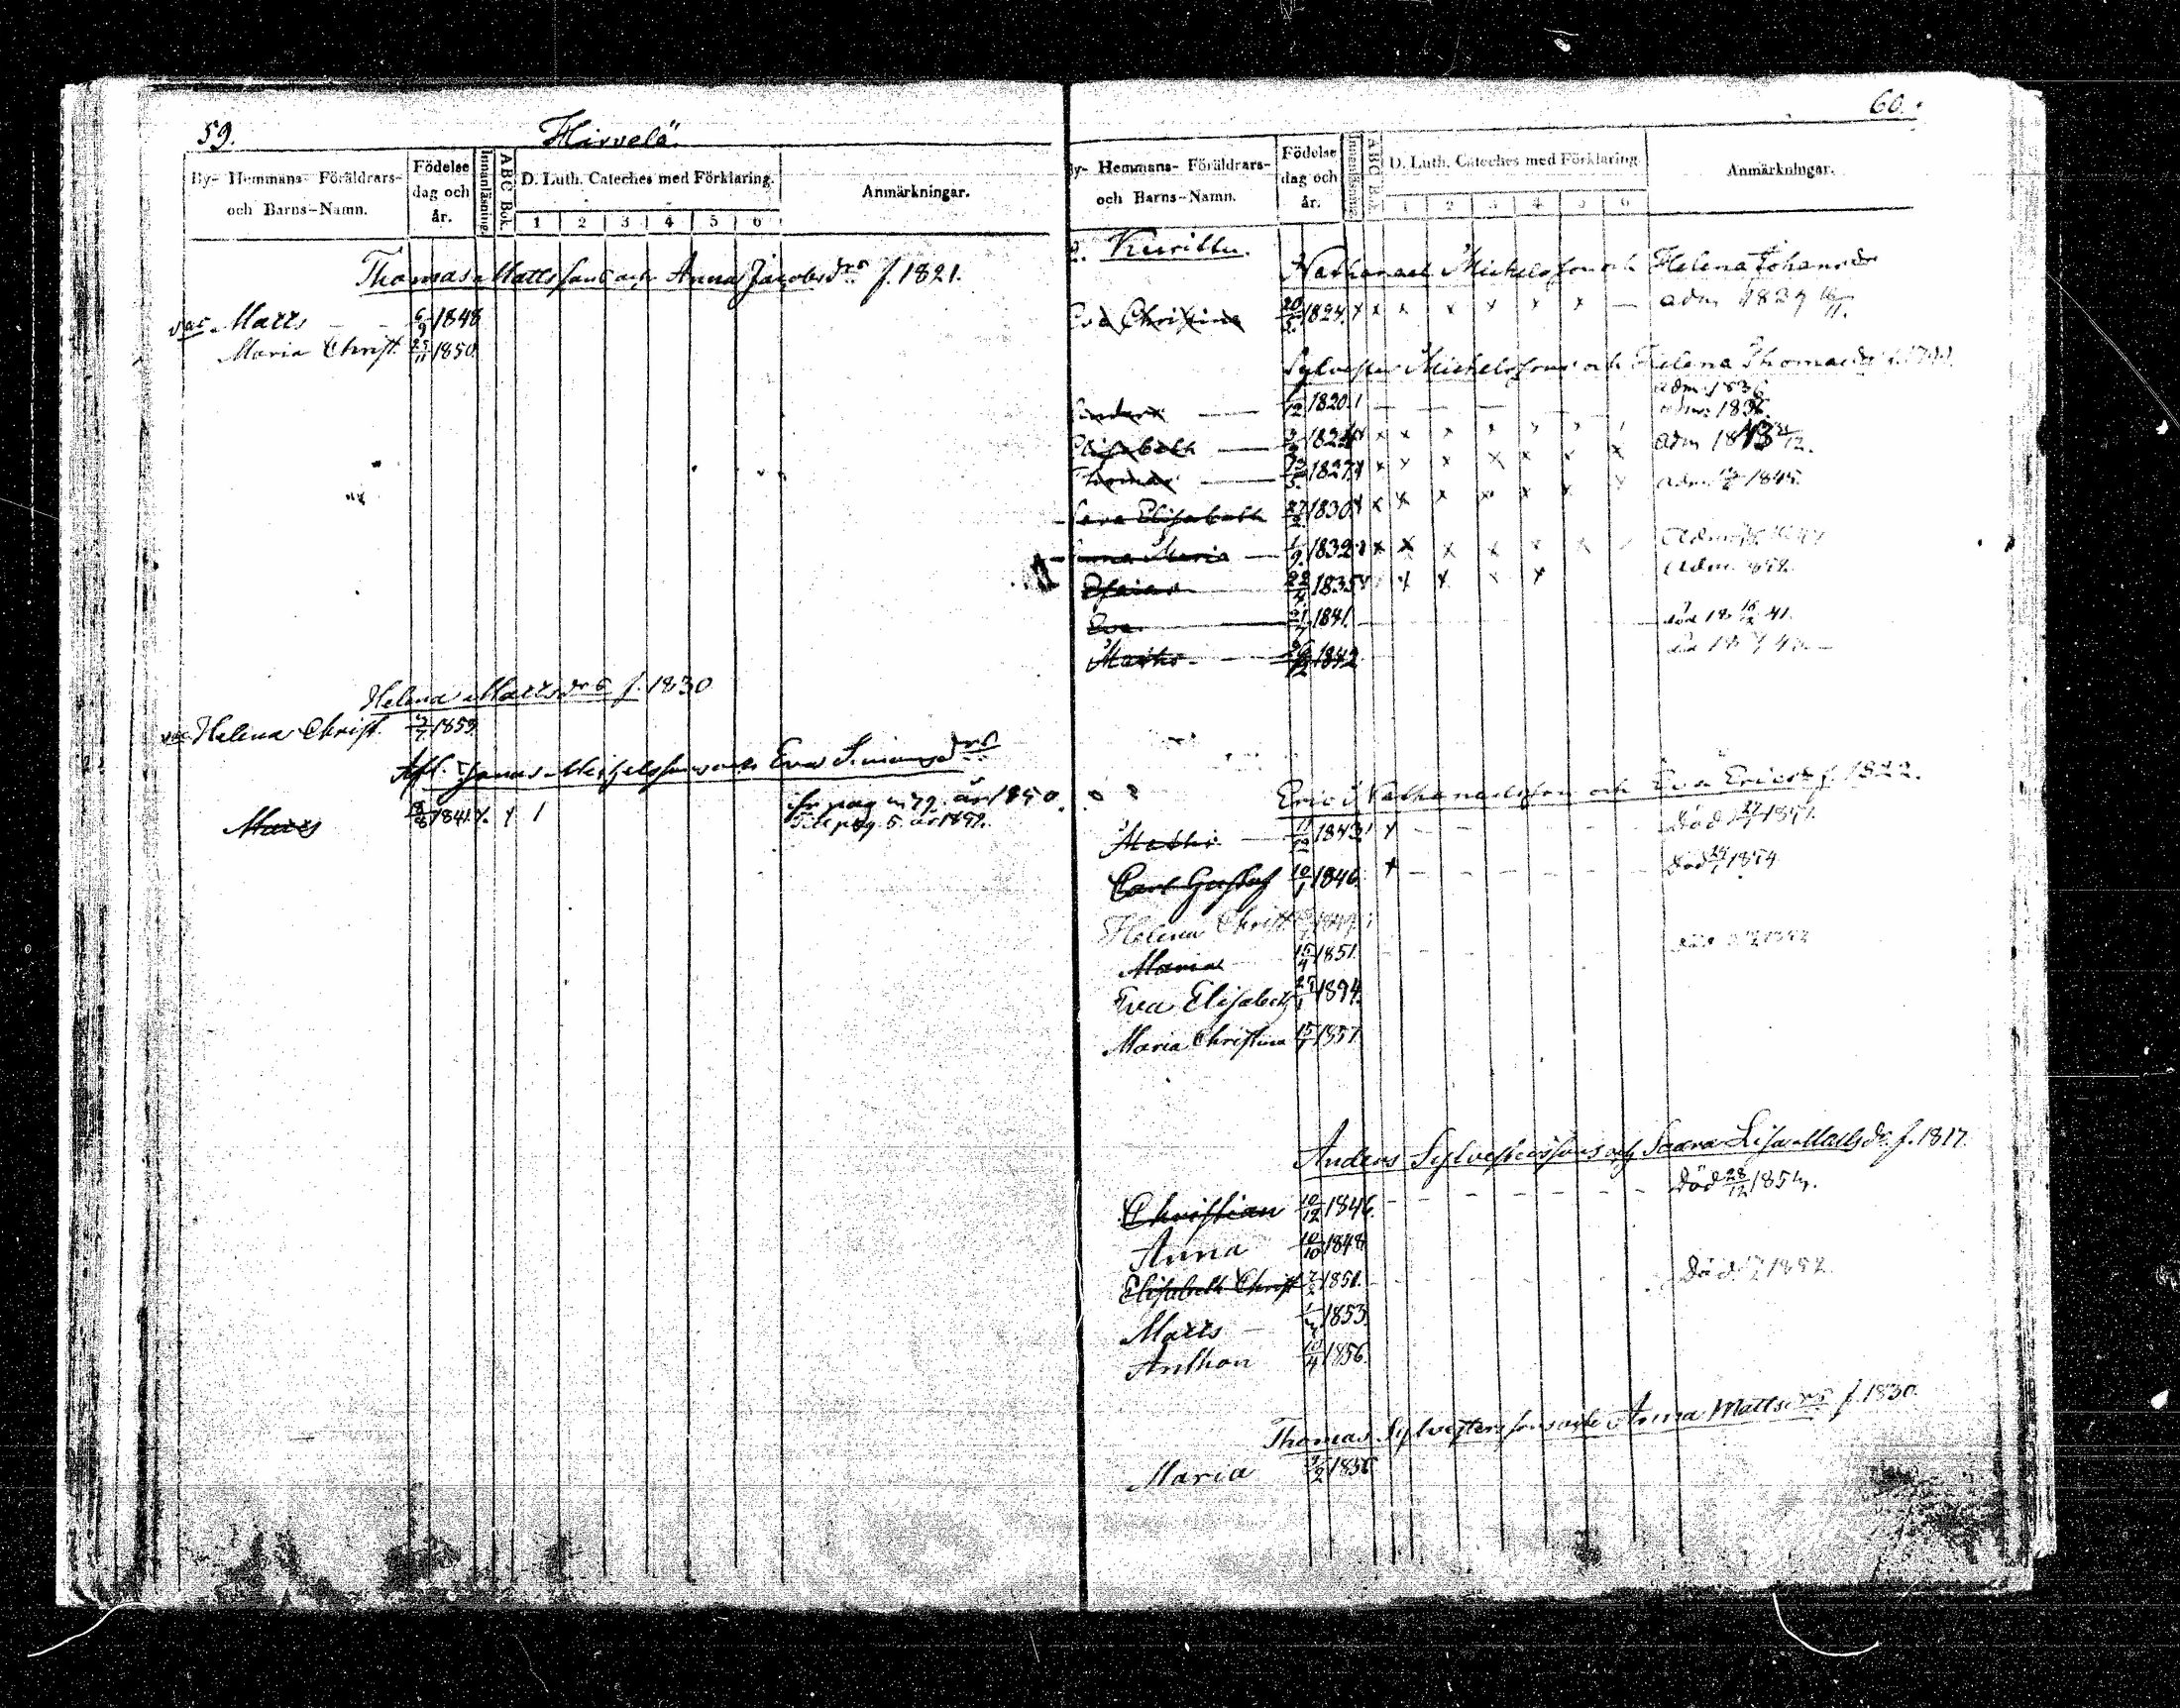 59.
Hirvelä.
By- Hemmans- Föräldrars- och Barns-Namn.
Födelse dag och år.
Innanläsning.
ABC Bok.
D. Luth. Cateches med Förklaring.
1 2 3 4 5 6
Anmärkningar.
Thomas Mattssons och Anna Jacobsdrs f. 1821.
vac. Matts 6/9 1848
Maria Christ. 25/11 1850
Helena Mattsdrs f. 1830
vac Helena Christ. 1853
Afl. Michelssons och Eva Simonsdrs
Matts 8/8 1841 x. x 1 pag. 79. år 1850.
Till pag. 5. år
60.
By- Hemmans- Föräldrars- och Barns-Namn.
Födelse dag och år.
Innanläsning
ABC Bok
D. Luth. Cateches med Förklaring.
1 2 3 4 5 6
Anmärkningar.
Nathanael Michelsson och Helena Johansdr
Eva Christina 20/5 1824. x x x x x x x — adm 1839
Sylvester Michelssons och Helena Thomasdr
adm. 1836
Anders — 12 1820. 1 — — — adm: 1836.
Elisabeth — 1824 x x x x x x adm 1843
Thomas — 13/5 1827 x x x x x x x adm. 1845.
Sara Elisabeth 27/2 1830 x x x x x x
Anna Maria — 1/9 1832 x x x x x x
Esaias 22/4 1835 x x x x x Adm.
Eva — 1841. — död 18 16/12 41.
Matts — 12 1842 —
Eric Nathanaelsson och Eva Ericsdr f. 1822.
Matts — 11/12 1843 x — — — — död
Carl Gustaf 10/1 1846 x — — — — — död 1854
Helena Christ.
Maria 15/4 1851.
Eva Elisabeth 1854.
Maria Christina 15/1 1857
Anders Sylvesterssons och Saara Lisa Mattsdr f. 1817.
Christian 10/12 1846. — — — — — — död 28/12 1854.
Anna 10/10 1848
Elisabeth Christ 7/2 1851. — — — — — — död 1852.
Matts — 1853
Anthon 10/4 1856.
Thomas Sylvesterssons och Anna Mattsdrs f. 1830.
Maria 1856